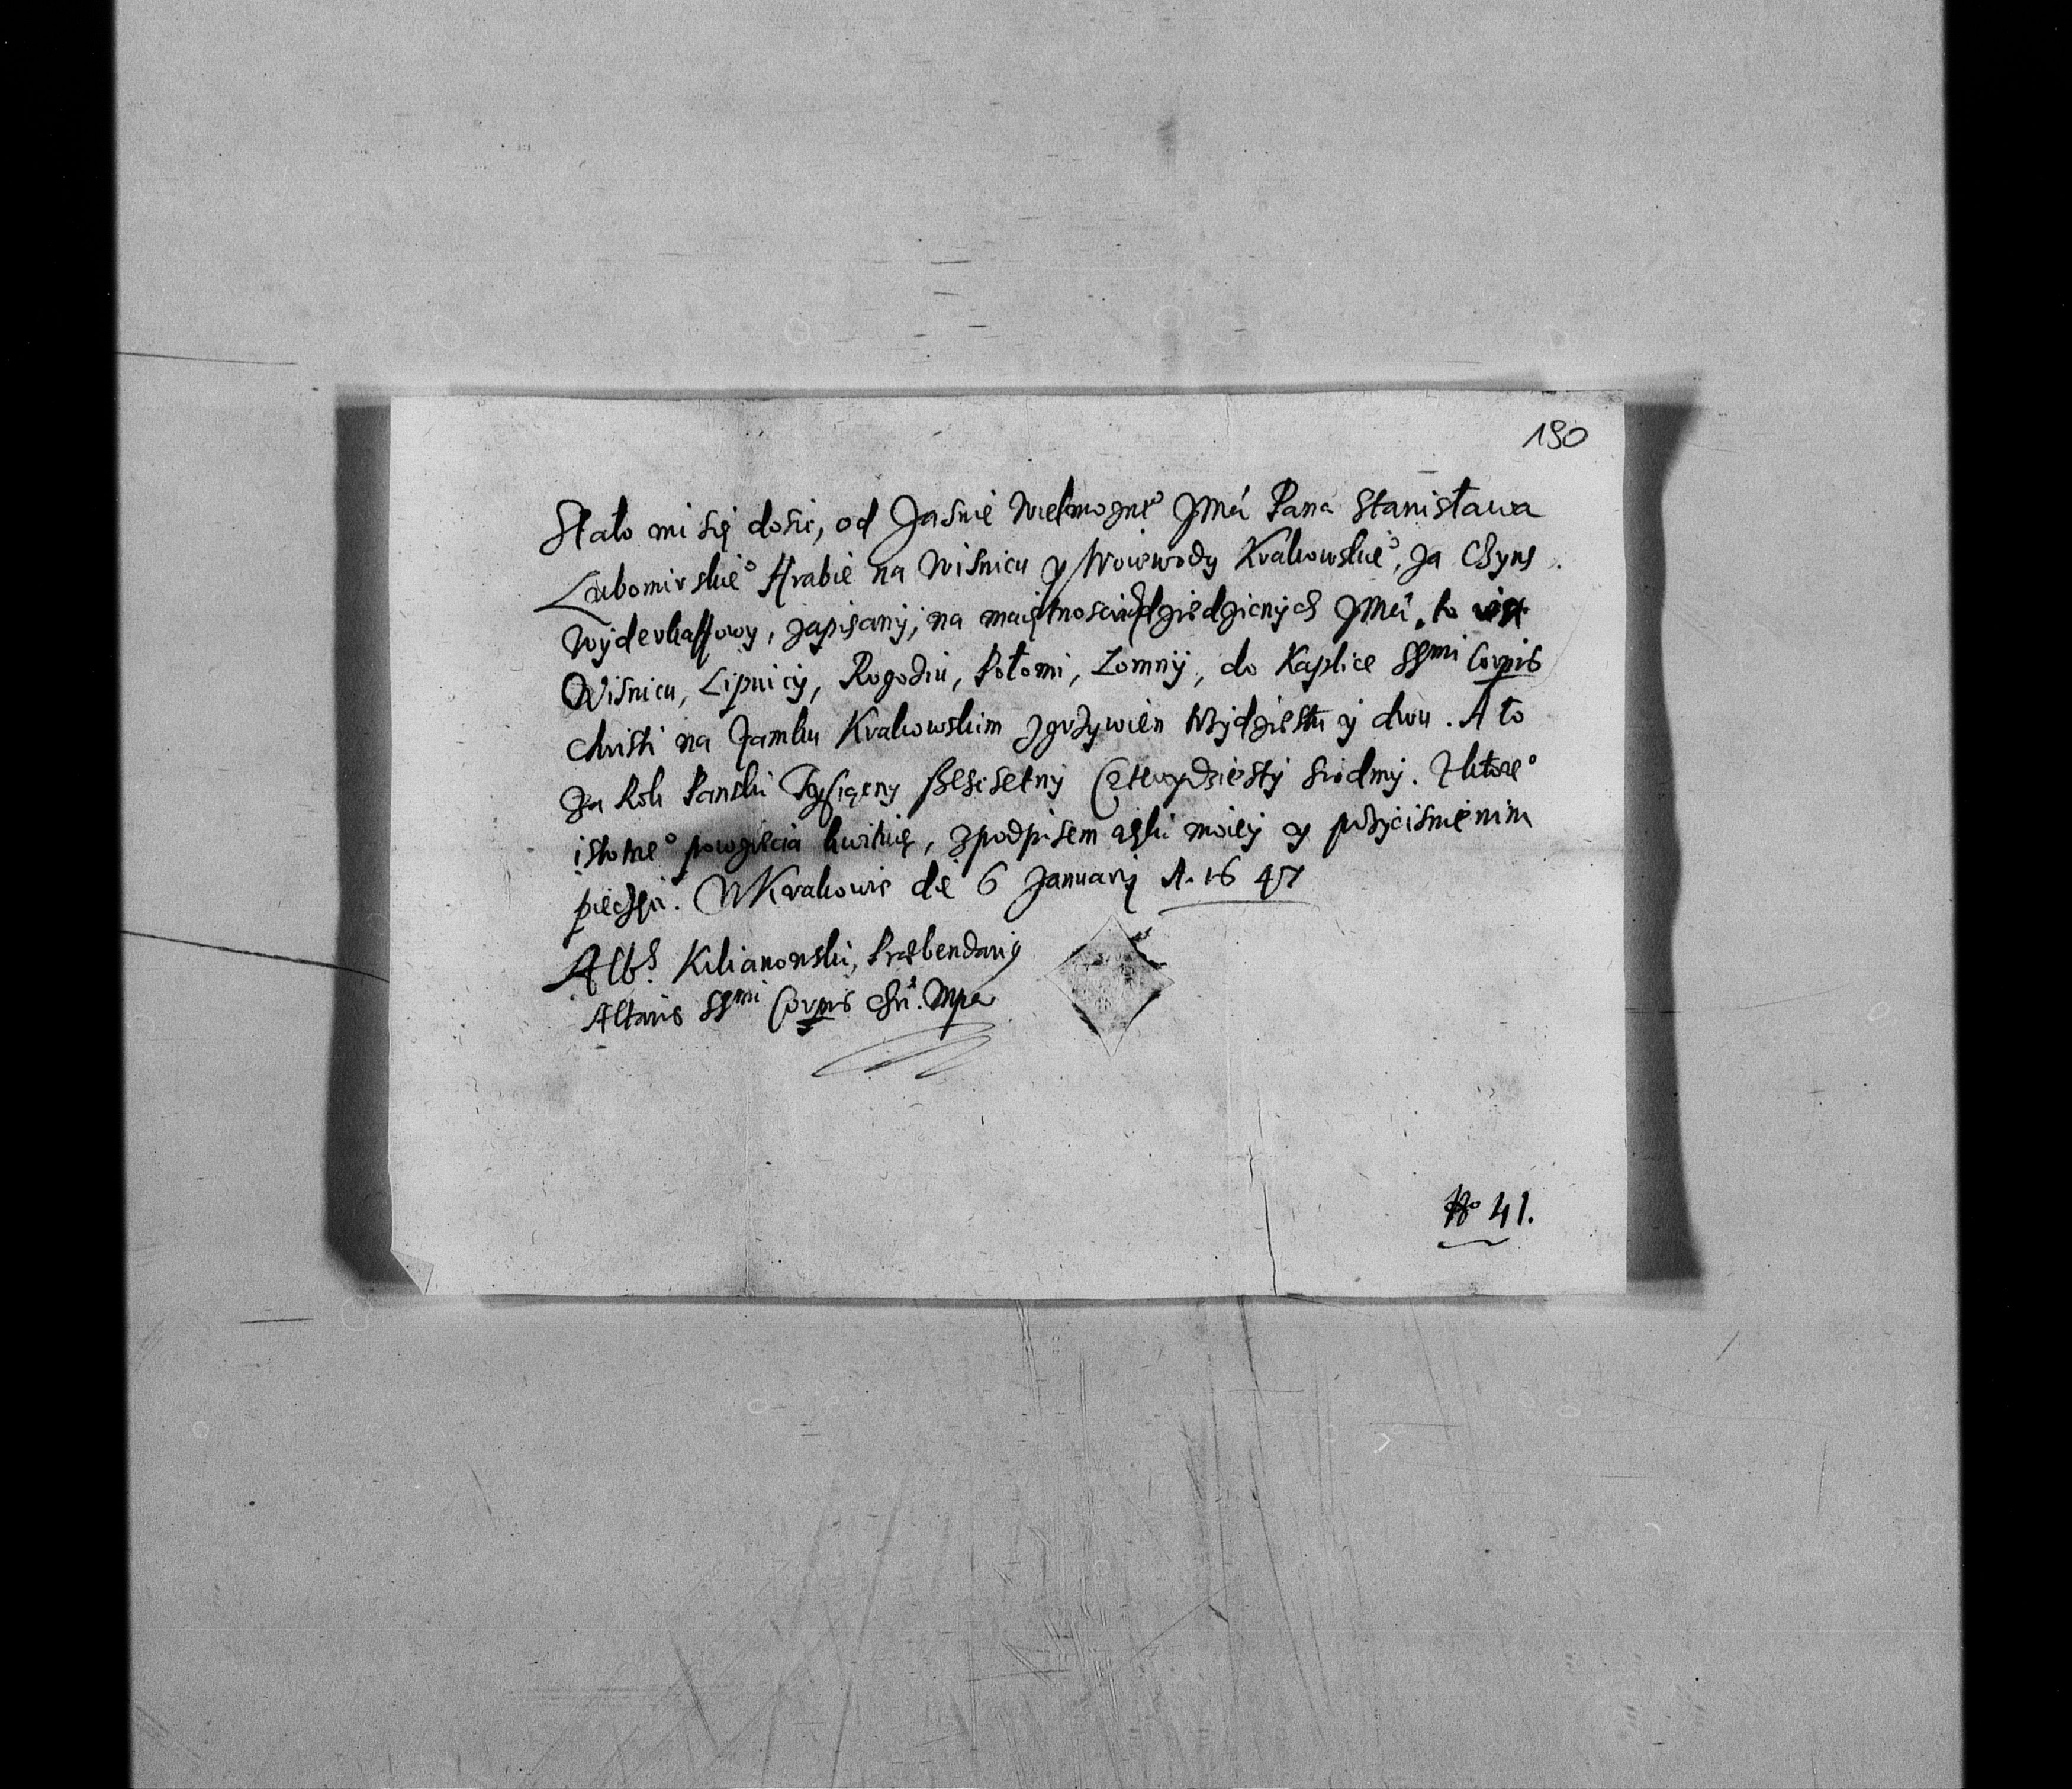 190
Stało mi się dosic, od Jasnie Wielmozne° JMći Pana Stanisława
Lubomirskie° Hrabie na Wisnicu y Woiewody Krakowskie°, za Czyns
Wyderkaffowy, zapisany, na maiętnosciach dziedzicnych JMći, to iest
Wisnicu, Lipnicy, Rogoziu, Połomi, Łomny, do Kaplice SSmi Corpis
Christi na Zamku Krakowskim zgrzywien trzydziestu y dwu. A to
za Rok Panski Tysiącny szescsetny Czterdziesty siodmy. Zktore°
istotne° powziecia kwituię, zpodpisem ręki moiey y przycisnienim
pieczęci. W Krakowie die 6 January A. 1647
Albs. Kilianowski, Præbendarius
Altaris SSmi Corpis Chri. Mpa
No 41.